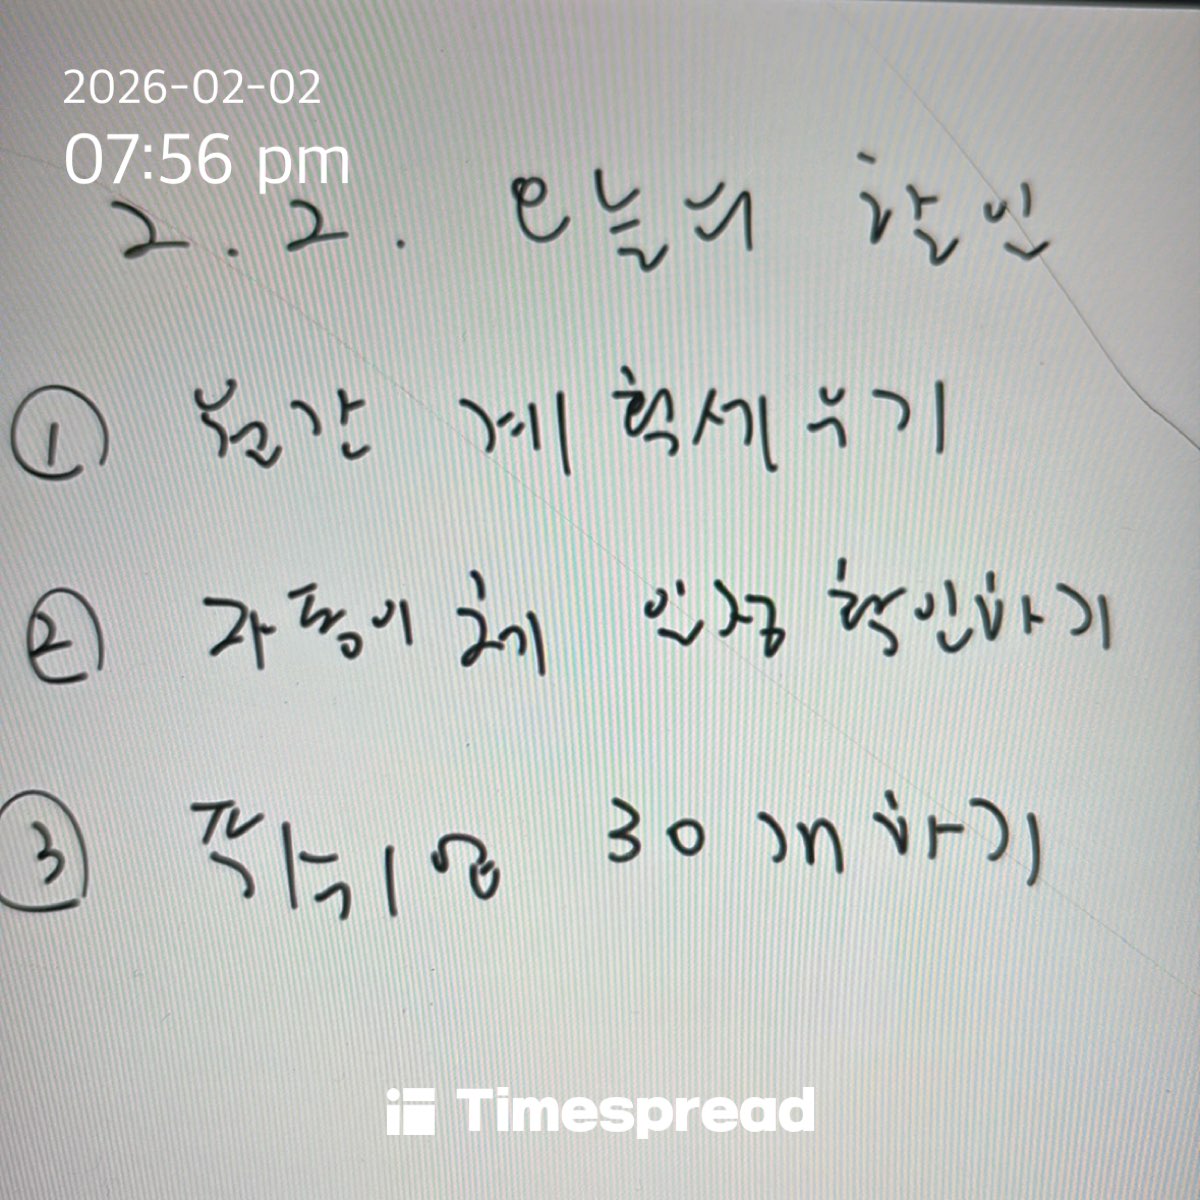 2026-02-02
07:56 pm
2.2. 오늘의 할일
① 월간 계획세우기
② 자동이체 입금 확인하기
③ 30개하기
Timespread